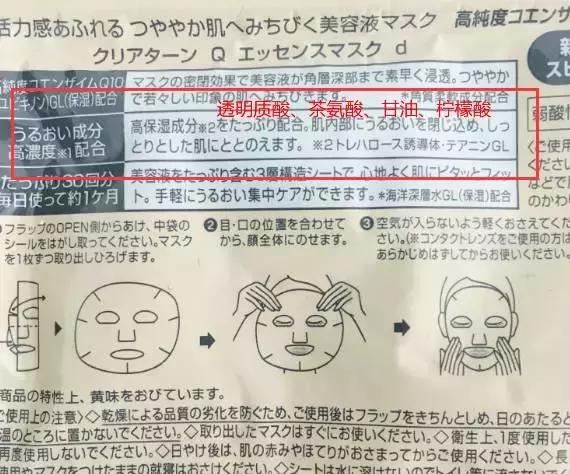 活力感あふれる つややか肌へみちびく美容液マスク 高純度コエンザ
クリアターン Q エッセンスマスク d
新
スピ
高純度コエンザイムQ10
(ユビキノン)GL(保湿)配合
マスクの密閉効果で美容液が角層深部まで素早く浸透。つややか
で若々しい印象の肌へみちびきます。 *角質柔軟成分配合
透明质酸、茶氨酸、甘油、柠檬酸
うるおい成分
高濃度※1配合
高保湿成分※2をたっぷり配合。肌内部にうるおいを閉じ込め、しっ
とりとした肌にととのえます。 ※2トレハロース誘導体・テアニンGL
弱酸性
たっぷり30回分
毎日使って約1ヶ月
美容液をたっぷり含む3層構造シートで、心地よく肌にピタッとフィッ
ト。手軽にうるおい集中ケアができます。*海洋深層水GL(保湿)配合
<ご使用
ください
などで
のかわり
フラップのOPEN側からあけ、中袋の
シールをはがし取ってください。マスク
を1枚ずつ取り出しひろげます。
❷目・口の位置を合わせて
から、顔全体にのせます。
❸空気が入らないよう軽くおさえてくだ
さい。(※コンタクトレンズをご使用の方は
あらかじめはずしてからお使いください。
商品の特性上、黄味をおびています。
ご使用上の注意>◇乾燥による品質の劣化を防ぐため、ご使用後はフラップをきちんとしめ、日のあたると
温のところに置かないでください。◇取り出したマスクはすぐにお使いください。◇衛生上、1度使用した
再度使用しないでください。◇日やけ後は、肌の赤みやほてりがおさまってからお使いください。◇長
使用やマスクをつけたままの就寝はおさけください。◇シートは水に溶けないのでトイレ